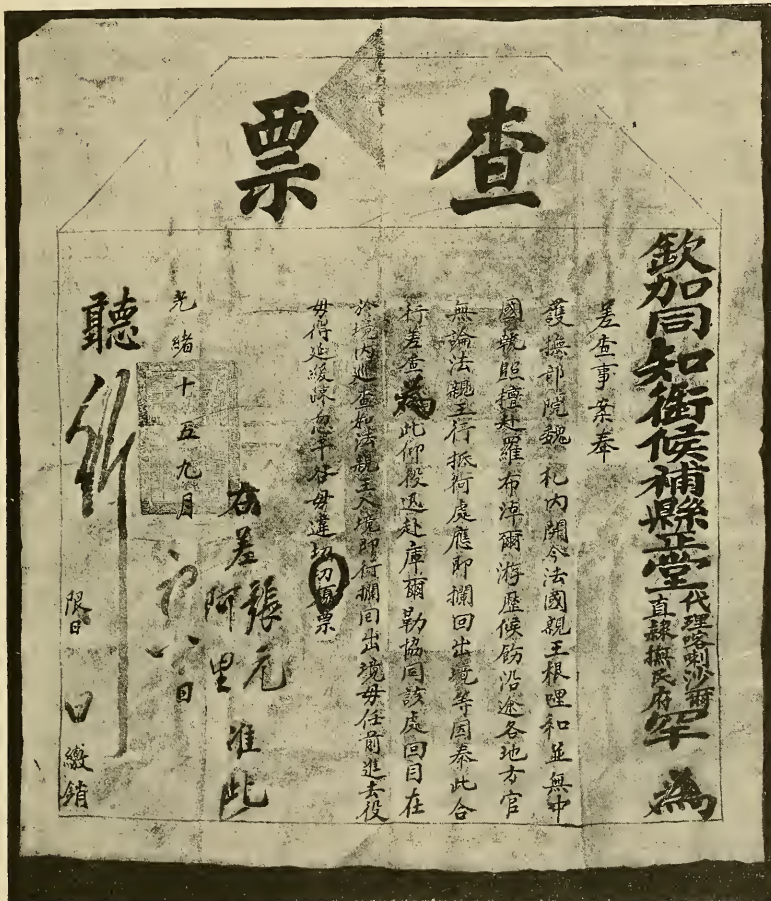 查票
欽加同知銜候補縣正堂代理喀喇沙爾直隸撫民府罕 為
差查事案奉
護撫部院魏 札內開今法國親王根哩和並無中
國執照擅赴羅布淖爾游歷候飭沿途各地方官
無論法親王行抵何處應即攔回出境等因奉此合
行差查為此仰役迅赴庫爾勒協同該處回目在
於境內巡查如法親王入境即行攔回出境毋任前進去役
毋得延緩疎忽干咎毋違切切須票
右差 張元 阿里 准此
光緒十五 九月 日
聽 行
限 日 繳銷